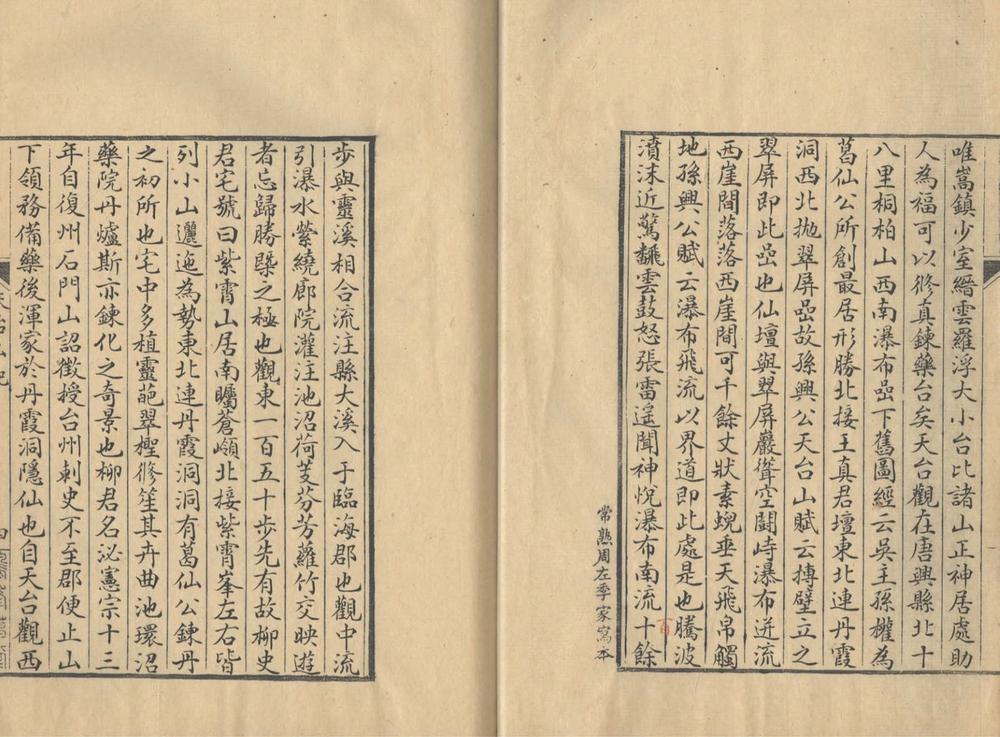 唯嵩鎮少室縉雲羅浮大小台比諸山正神居處助
人為福可以修真鍊藥台矣天台觀在唐興縣北十
八里桐柏山西南瀑布嵒下舊圖經云吳主孫權為
葛仙公所創最居形勝北接王真君壇東北連丹霞
洞西北抛翠屏嵒故孫興公天台山賦云摶壁立之
翠屏即此嵒也仙壇與翠屏巖聳空闘峙瀑布迸流
西崖間落落西崖間可千餘丈狀素蜺垂天飛帛觸
地孫興公賦云瀑布飛流以界道即此處是也騰波
濆沫近驚飜雲鼓怒張雷遥聞神悅瀑布南流十餘
常熟周左季家寫本
步與靈溪相合流注縣大溪入于臨海郡也觀中流
引瀑水縈繞廊院灌注池沼荷芰芬芳蘿竹交映遊
者忘歸勝槩之極也觀東一百五十步先有故柳史
君宅號曰紫霄山居南矚蒼嶺北接紫霄峯左右皆
列小山邐迤為勢東北連丹霞洞洞有葛仙公鍊丹
之初所也宅中多植靈葩翠檉修笙其卉曲池環沼
藥院丹爐斯亦鍊化之奇景也柳君名泌憲宗十三
年自復州石門山詔徵授台州刺史不至郡便止山
下領務備藥後渾家於丹霞洞隱仙也自天台觀西